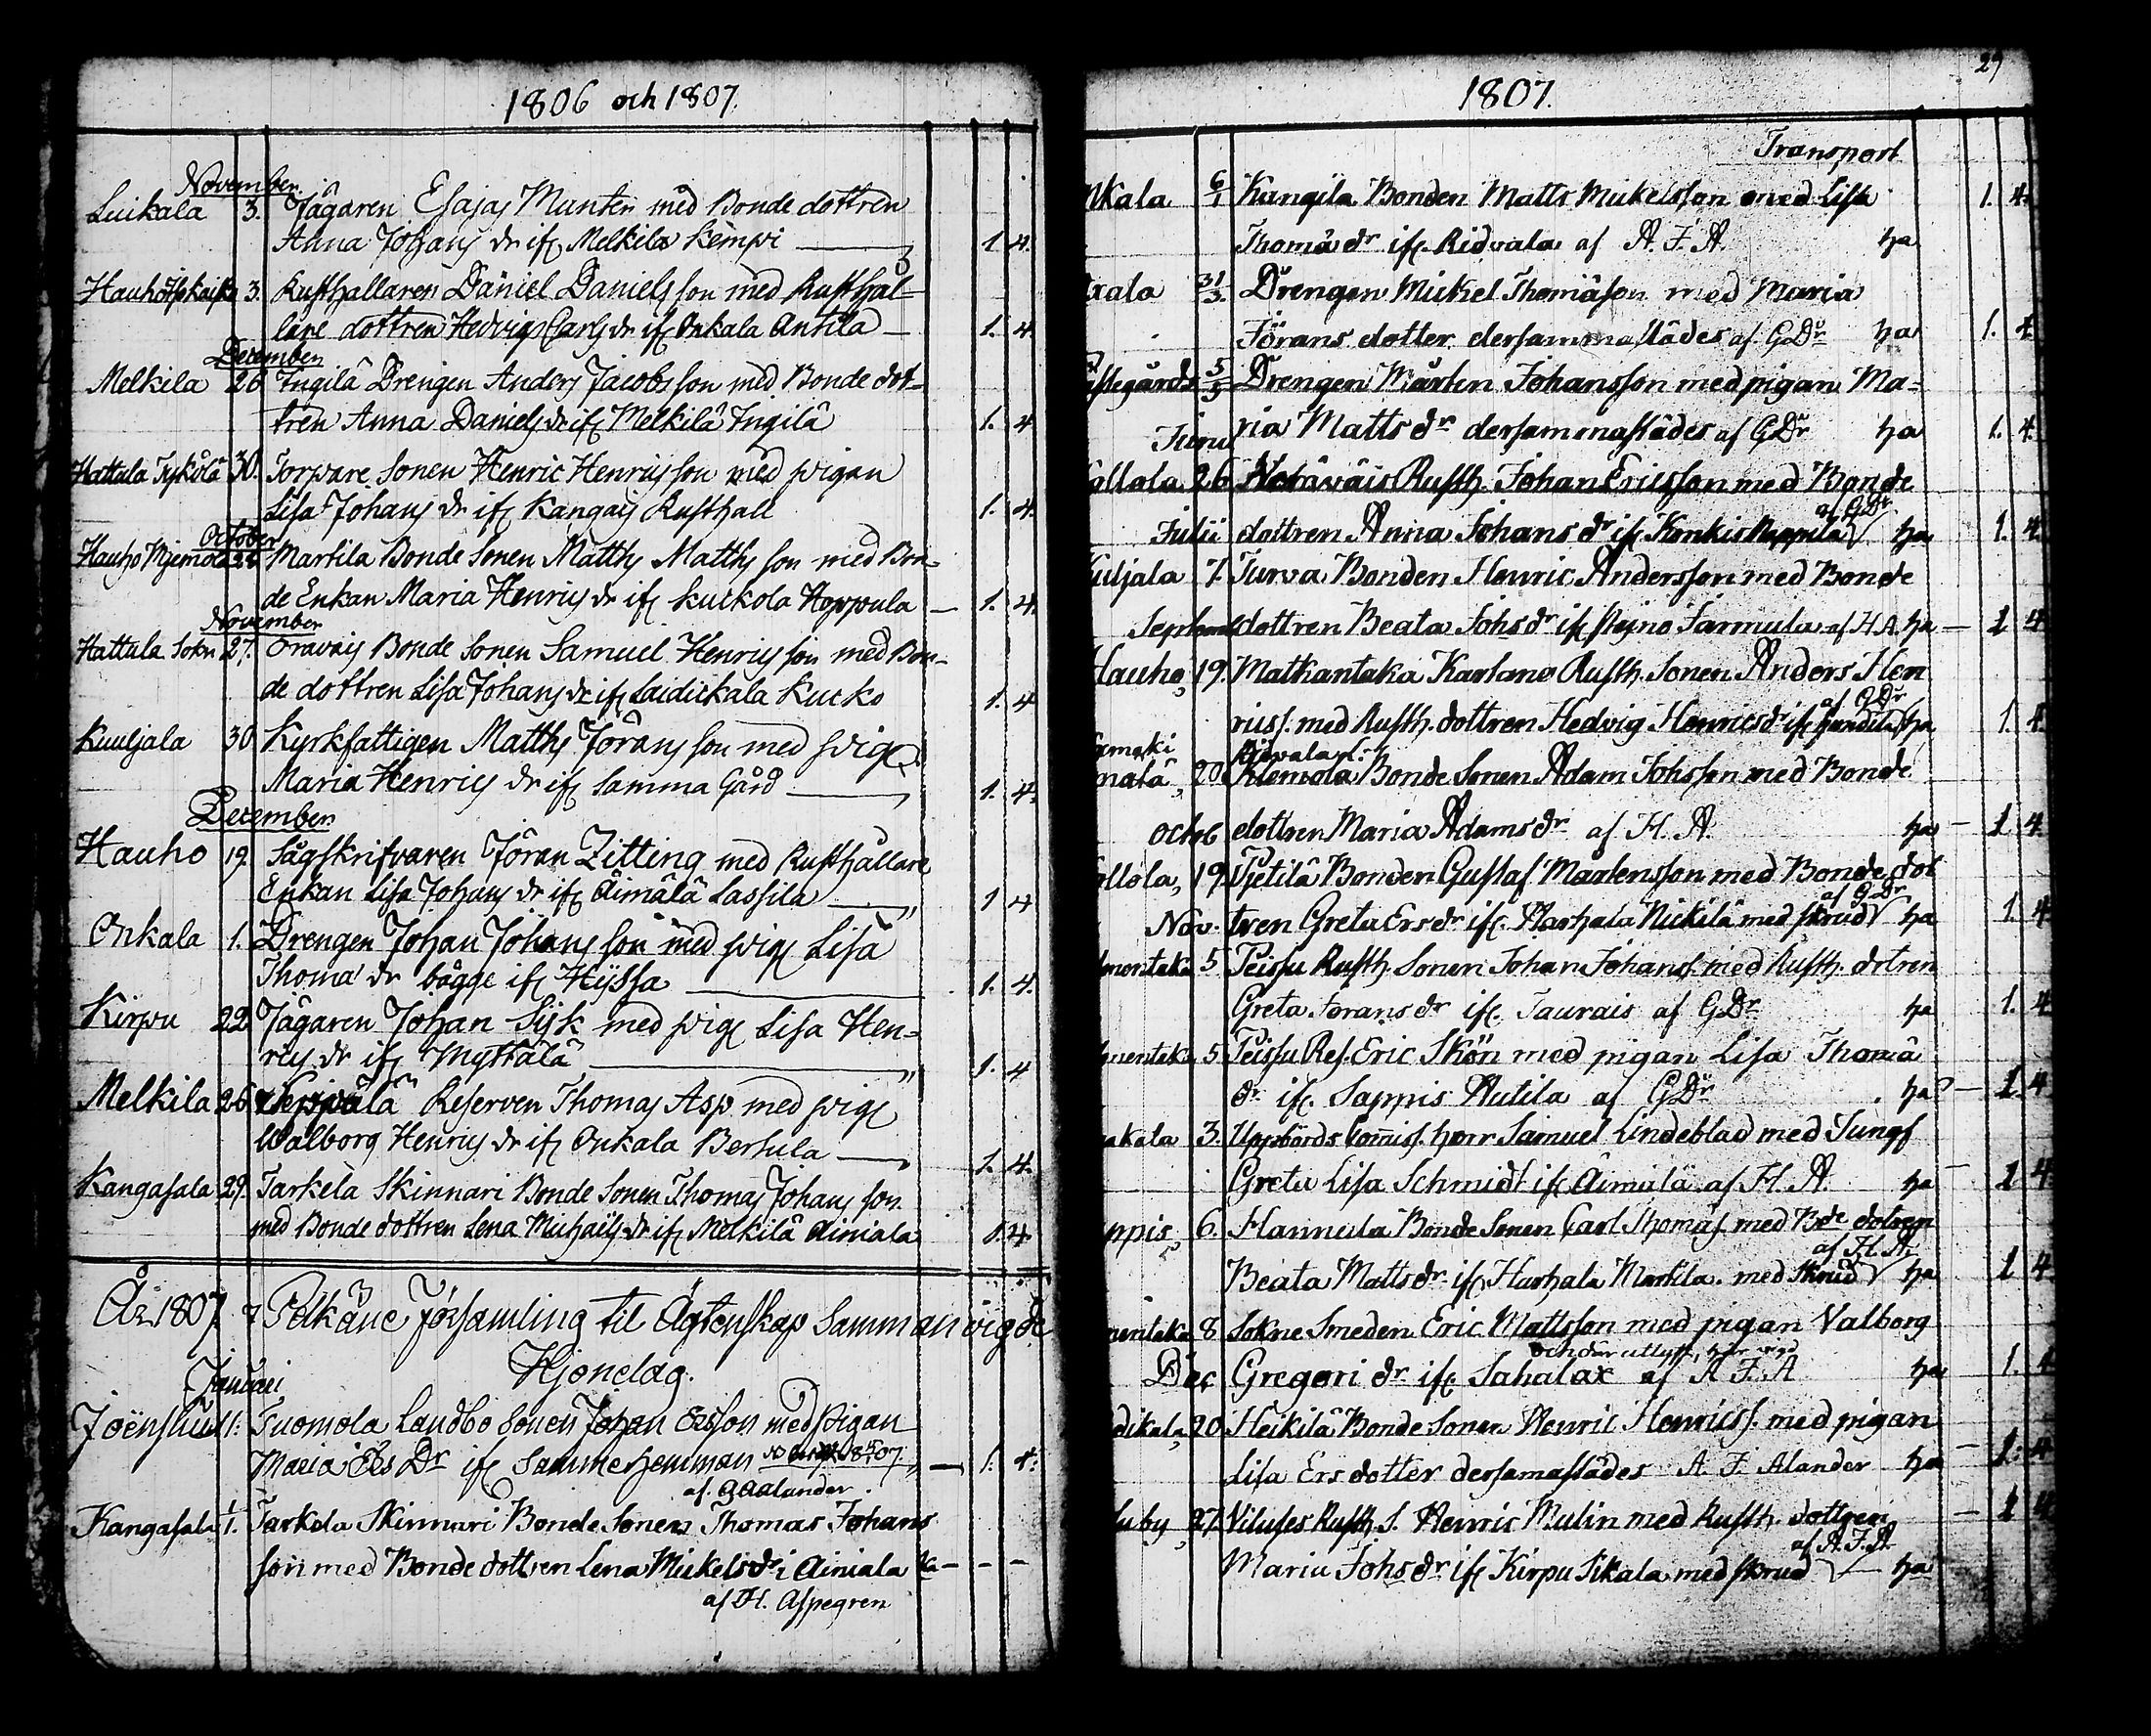 1806 och 1807.
November.
Luikala 3. Jägaren Esajas Munter med Bonde dottren
Anna Johans dr ifr Melkila Kempi 1. 4.
Hauho 3. Rusthållaren Daniel Danielsson med Rusthål-
lare dottren Hedvig Carls dr ifr Onkala Antila 1. 4.
December
Melkila 26 Ingilä Drengen Anders Jacobsson med Bonde dot-
tren Anna Daniels dr ifr Melkilä Ingilä 1. 4
Hattula Tykölä 30. Torpare Sonen Henric Henricsson med pigan
Lisa Johans dr ifr Kangais Rusthåll 1. 4.
October
Hauho 28 Martila Bonde Sonen Matths Matths son med Bon-
de Enkan Maria Henrics dr ifr Kuckola Hoppula 1. 4.
November
Hattula Sokn 27. Oravais Bonde Sonen Samuel Henricsson med Bon-
de dottren Lisa Johans dr ifr Laidickala Kucko 1. 4
Kuuljala 30 Kyrkfattigen Matths Jöransson med pig
Maria Henrics dr ifr Samma Gård 1. 4.
December
Hauho 19. Sågskrifvaren Jöran Zitting med Rusthållare
Enkan Lisa Johans dr ifr Äimälä Lassila 1 4
Onkala 1. Drengen Johan Johansson med pig Lisa
Thoma dr bägge ifr Heyssa 1. 4.
Kirpu 22 Jägaren Johan Sisk med pig Lisa Hen-
rics dr ifr Myttälä 1. 4
Melkila 26 Seppälä Reserven Thomas Asp med pig
Walborg Henrics dr ifr Onkala Bersula 1. 4.
Kangasala 29. Tarkela Skinnari Bonde Sonen Thomas Johans son
med Bonde dottren Lena Michaels dr ifr Melkilä Äiniala 1. 4.
År 1807 i Pelkäne församling til Ägtenskap Samman vigde
Hjonelag.
Januari
Joensuu 1. Tuomola Landbo Sonen Johan Ersson med pigan
Maria Ers Dr ifr Samma hemman 1. 4.
af G A Alander
Kangasala 1. Tarkela Skinnari Bonde Sonen Thomas Johans
son med Bonde dottren Lena Mickels dr i Äiniala — — —
af H. Aspegren
29
1807.
Transport
nkala 6/1 Kungila Bonden Matts Mickelsson med Lisa 1. 4.
Thomä dr ifr. Ridvala af A. F. A. ha
xala 31/3. Drengen Mickel Thomäson med Maria
Jörans dotter dersammastädes af GDr ha 1. 4
stegårds 5/5 Drengen Mårten Johansson med pigan Ma-
ria Matts dr dersammastädes af GDr ha 1. 4.
Junii
allala 26 Rusth. Johan Ericsson med Bonde
af GDr
Julii dottren Anna Johans dr ifr Konkis Reppila ha 1. 4.
uljala 7. Turva Bonden Henric Andersson med Bonde
Septemb dottren Beata Johs dr ifr Jarmula af H A. ha — 1 4
Hauho, 19. Matkantaka Karlano Rusth. Sonen Anders Hen
af GDr
rics s. med Rusth. dottren Hedvig Henrics dr ifr ha 1. 4.
malä, 20. Klemola Bonde Sonen Adam Johsson med Bonde
Octob dottren Maria Adams dr af H. A. ha — 1 4
ollola, 19. Pietilä Bonden Gustaf Mårtensson med Bonde dot
af GDr
Nov. tren Greta Ers dr ifr. Harhala Nickilä med skrud ha 1. 4
mentaka 5 Peissu Rusth. Sonen Johan Johans s. med Rusth. dotren
Greta Jorans dr ifr. Taurais af GDr ha 1. 4
mentaka 5. Peissu Res. Eric Skön med pigan Lisa Thomä
dr ifr. Sappis Autila af GDr ha — 1. 4
akala 3. Uppbörds Commiss. herr Samuel Lindeblad med Jungf
Greta Lisa Schmidt ifr Äimälä af H. A. ha — 1 4
ppis, 6. Hannula Bonde Sonen Carl Thomäs. med Bde dotren
af H. A.
Beata Matts dr ifr. Harhala Markila med skrud ha 1 4
mentaka 8 Sokne Smeden Eric Mattsson med pigan Valborg
Dec Gregori dr ifr Sahalax af A F. A ha 1. 4
dikala, 20. Heikilä Bonde Sonen Henric Henrics s. med pigan
Lisa Ers dotter dersamastädes A. F. Alander ha — 1. 4
by, 27. Viluses Rusth. S. Henric Mulin med Rusth. dottren — 1 4
af A. F. A.
Maria Johs dr ifr Kirpu Sikala med skrud ha